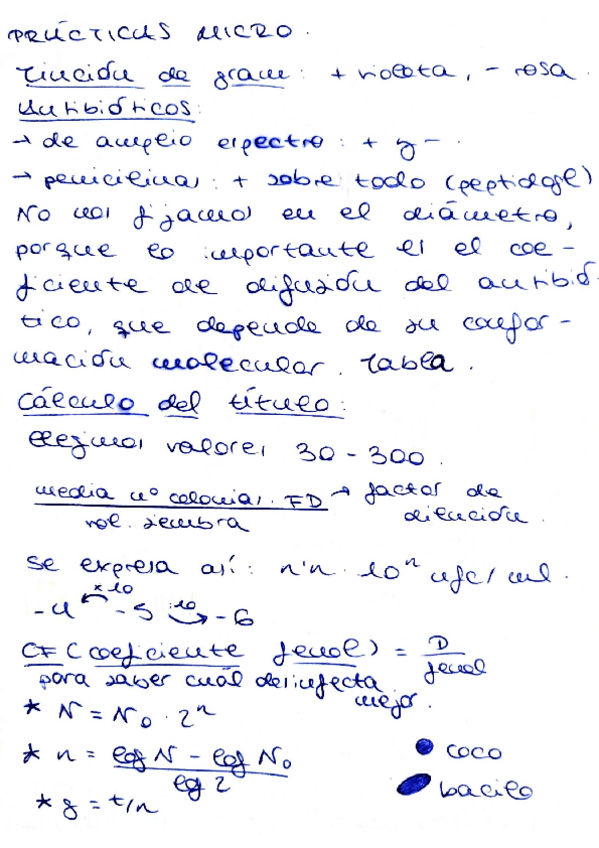 PRÁCTICAS MICRO.
Tinción de gram: + violeta, - rosa.
Antibióticos:
→ de amplio espectro: + y -.
→ penicilinas: + sobre todo (peptidogl)
No nos fijamos en el diámetro,
porque lo importante es el coe-
ficiente de difusión del antibió-
tico, que depende de su confor-
mación molecular. Tabla.
Cálculo del título:
Elegimos valores 30 - 300.
media nº colonias . FD → factor de
vol. siembra dilución.
Se expresa así: n'n · 10ⁿ ufc/ml.
x10 :10
-4 -5 -6
CF (coeficiente fenol) = D
fenol
para saber cuál desinfecta
mejor.
* N = N₀ · 2ⁿ
* n = log N - log N₀
lg 2
* g = t/n
coco
bacilo